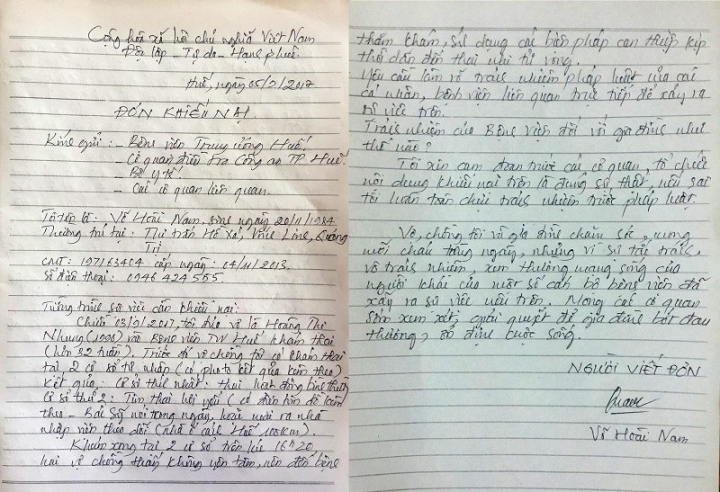 Cộng hòa xã hội chủ nghĩa Việt Nam
Độc lập - Tự do - Hạnh phúc
Huế, ngày 05/9/2017
ĐƠN KHIẾU NẠI
Kính gửi: - Bệnh viện Trung ương Huế.
- Cơ quan điều tra Công an TP Huế.
- Bộ y tế.
- Các cơ quan liên quan.
Tôi tên là: Võ Hoài Nam, sinh ngày 20/11/1984
Thường trú tại: Thị trấn Hồ Xá, Vĩnh Linh, Quảng
Trị
CMT: 197163404 cấp ngày: 04/11/2013.
Số điện thoại: 0946 424 555
Tường trình sự việc cần khiếu nại:
Chiều 03/9/2017, tôi đưa vợ là Hoàng Thị
Nhung (1990) vào Bệnh viện TW Huế khám thai
(hơn 32 tuần). Trước đó vợ chồng tôi có khám thai
tại 2 cơ sở tư nhân (có photo kết quả kèm theo)
Kết quả: Cơ sở thứ nhất: thai hoạt động bình thường
Cơ sở thứ 2: Tim thai hơi yếu (có
theo - Bác sỹ nói trong ngày, hoặc mai ra nhà
nhập viện theo dõi (nhà ở cách Huế 100km).
Khám xong tại 2 cơ sở trên lúc 16h20
hai vợ chồng thấy không yên tâm, nên đến bệnh
thăm khám, sử dụng các biện pháp can thiệp kịp
thời dẫn đến thai nhi tử vong.
Yêu cầu làm rõ trách nhiệm pháp luật của các
cá nhân, bệnh viện liên quan trực tiếp để xảy ra
sự việc trên.
Trách nhiệm của Bệnh viện đối với gia đình như
thế nào?
Tôi xin cam đoan trước các cơ quan, tổ chức
nội dung khiếu nại trên là đúng sự thật, nếu sai
tôi hoàn toàn chịu trách nhiệm trước pháp luật.
Vợ, chồng tôi và gia đình chăm sóc, mong
mỏi cháu từng ngày, nhưng vì sự tắc trách,
vô trách nhiệm, xem thường mạng sống của
người khác của một số cán bộ bệnh viện đã
xảy ra sự việc nêu trên. Mong các cơ quan
sớm xem xét, giải quyết để gia đình bớt đau
thương, ổn định cuộc sống.
NGƯỜI VIẾT ĐƠN
Võ Hoài Nam